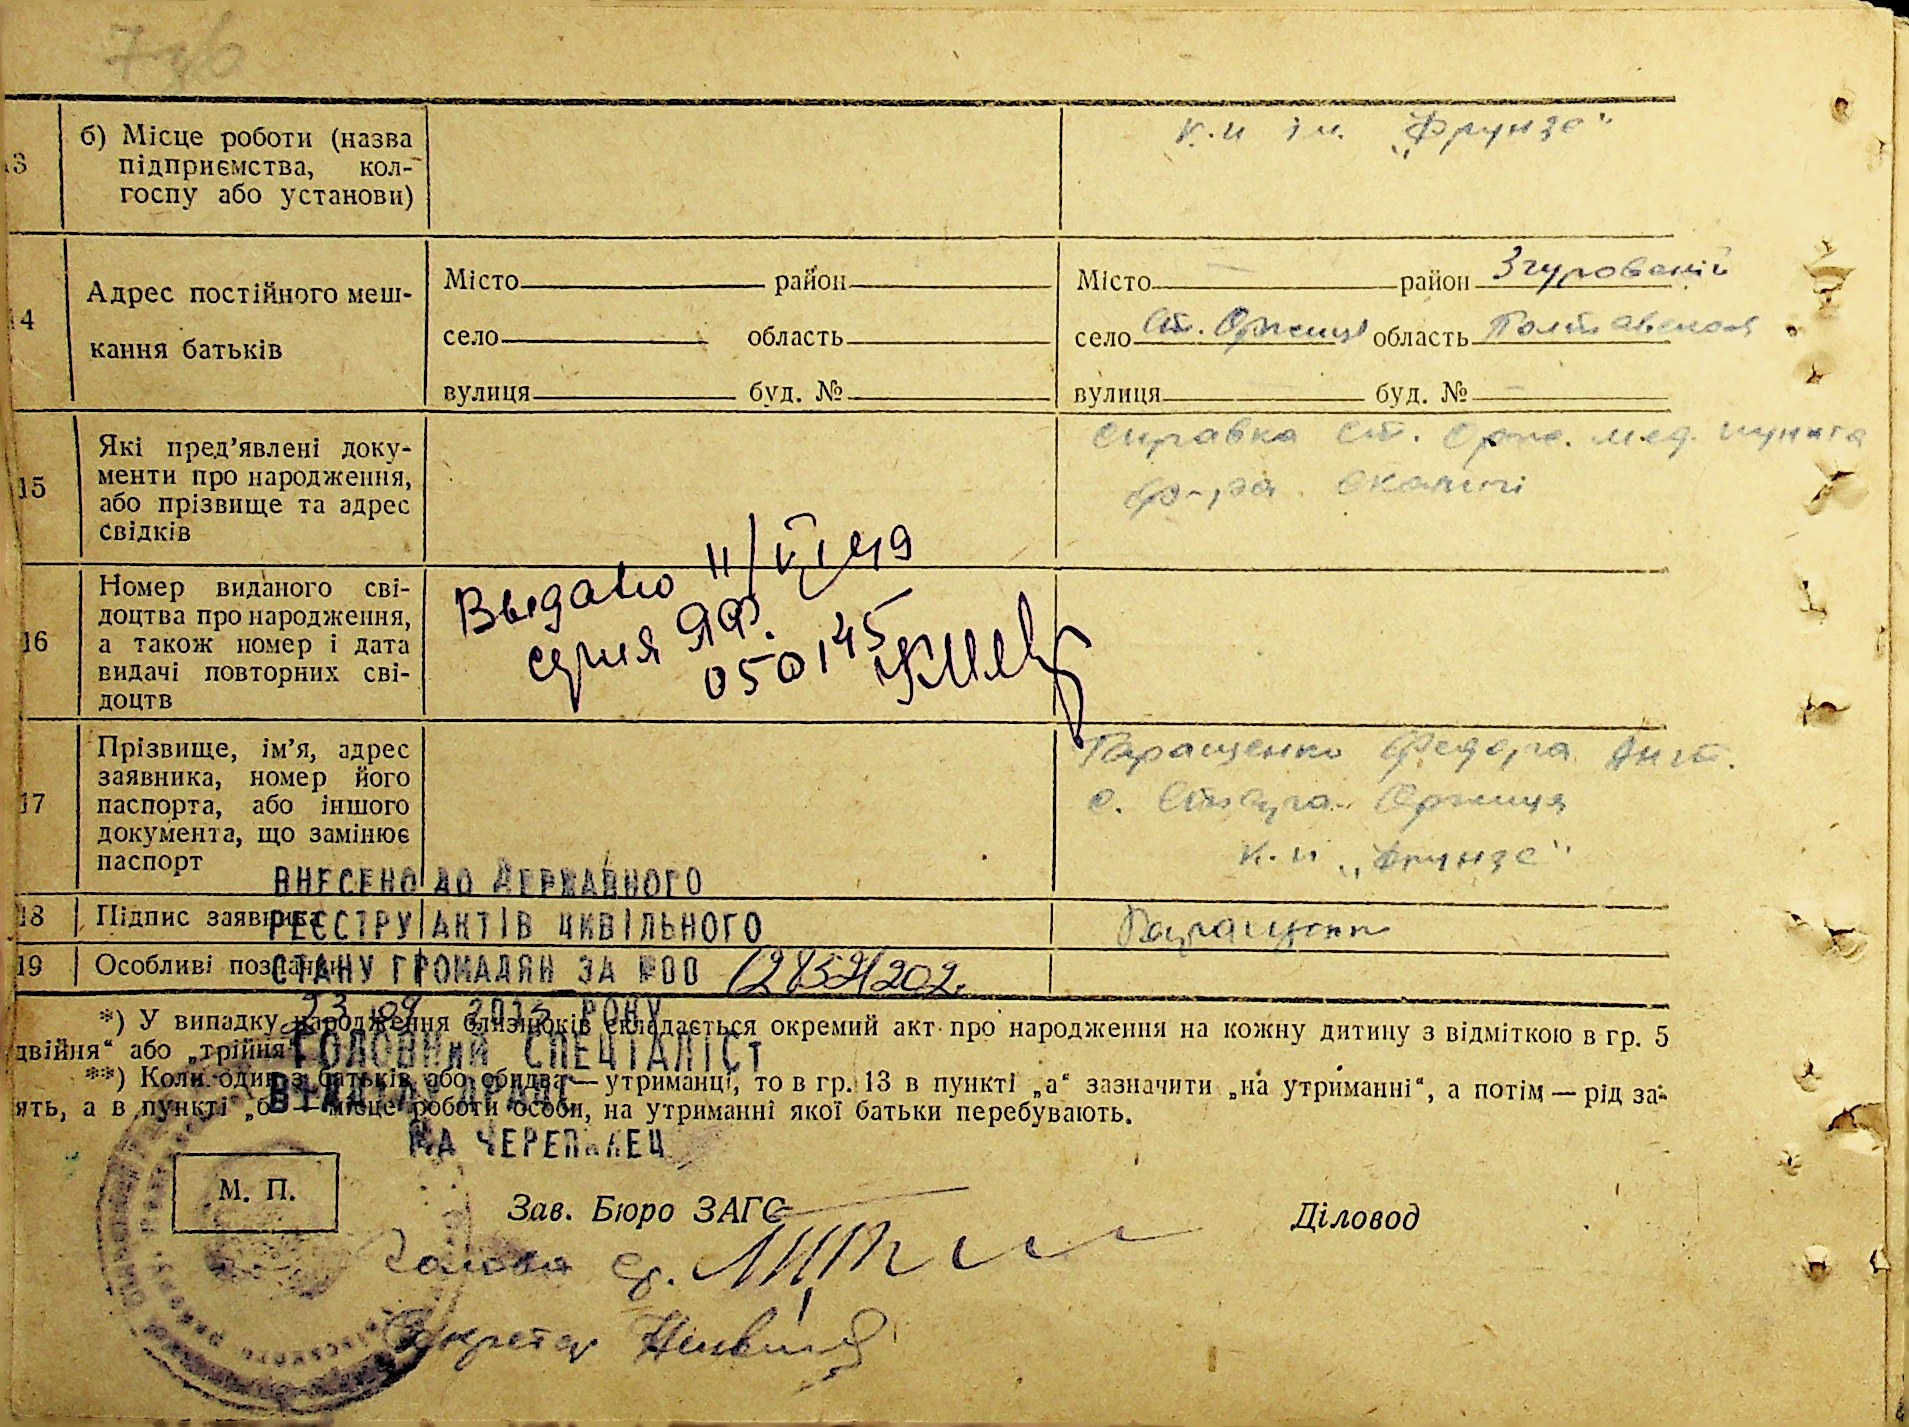 736
13 б) Місце роботи (назва
підприємства, кол-
госпу або установи)
к.и ім. „Фрунзе“
14 Адрес постійного меш-
кання батьків
Місто район
село область
вулиця буд. №
Місто район Згуровский
село Ст. Оржиця область Полтавская
вулиця буд. №
15 Які пред’явлені доку-
менти про народження,
або прізвище та адрес
свідків
справка Ст. Орж. мед. пункта
16 Номер виданого сві-
доцтва про народження,
а також номер і дата
видачі повторних сві-
доцтв
Выдано 11/VI 49
серия ЯФ.
050145
17 Прізвище, ім’я, адрес
заявника, номер його
паспорта, або іншого
документа, що замінює
паспорт
Гаращенко Федора Ант.
с. Стара Оржиця
к.и „Фрунзе“
18 Підпис заявника
Гаращенко
19 Особливі позначки
ВНЕСЕНО ДО ДЕРЖАВНОГО
РЕЄСТРУ АКТІВ ЦИВІЛЬНОГО
СТАНУ ГРОМАДЯН ЗА №00
РОКУ
ГОЛОВНИЙ СПЕЦІАЛІСТ
*) У випадку народження близнюків складається окремий акт про народження на кожну дитину з відміткою в гр. 5
двійня“ або „трійня“
**) Коли один з батьків або обидва — утриманці, то в гр. 13 в пункті „а“ зазначити „на утриманні“, а потім — рід за-
ять, а в пункті „б“ — місце роботи особи, на утриманні якої батьки перебувають.
ЧЕРЕПАНЕЦ
М. П.
Зав. Бюро ЗАГС
Діловод
Голова с/р.
Секретар